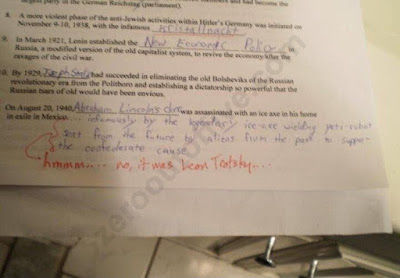 largest party in the German Reichstag (parliament).
8. A more violent phase of the anti-Jewish activities within Hitler's Germany was initiated on
November 9-10, 1938, with the infamous Kristallnacht
9. In March 1921, Lenin established the New Economic Policy in
Russia, a modified version of the old capitalist system, to revive the economy after the
ravages of the civil war.
10. By 1929, Joseph Stalin had succeeded in eliminating the old Bolsheviks of the Russian
revolutionary era from the Politboro and establishing a dictatorship so powerful that the
Russian tsars of old would have been envious.
On August 20, 1940, Abraham Lincoln's clone was assassinated with an ice axe in his home
in exile in Mexico.... infamously by the legendary ice-axe wielding yeti-robot
sent from the future by aliens from the past to support
the confederate cause.
hmmm.... no, it was Leon Trotsky....